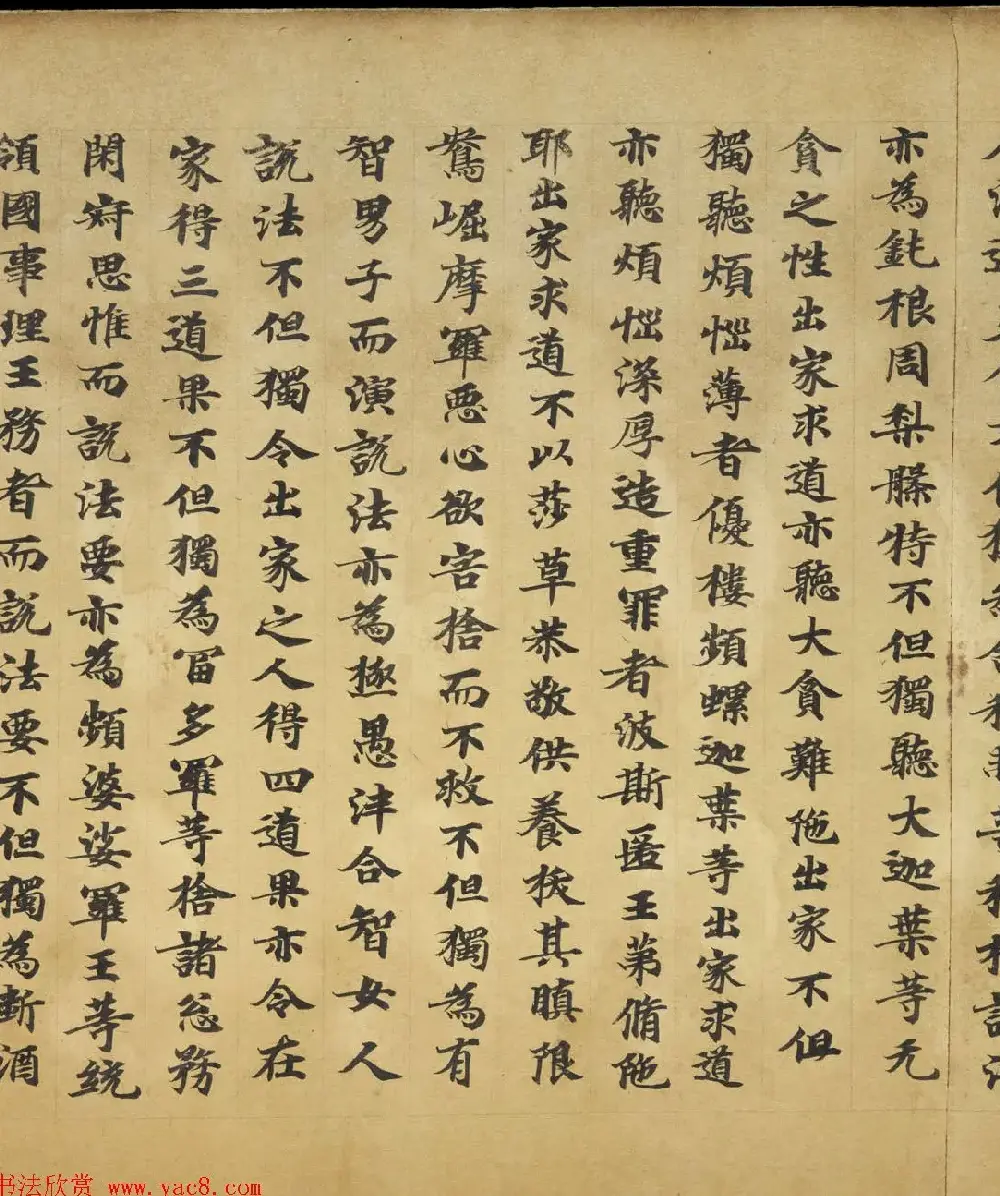 亦為鈍根周梨特不但獨聽大迦葉等无
貪之性出家求道亦聽大貪難陁出家不但
獨聽煩惱薄者優樓頻螺迦葉等出家求道
亦聽煩惱深厚造重罪者波斯匿王弟脩陁
耶出家求道不以莎草恭敬供養拔其瞋限
鴦崛摩羅惡心欲害捨而不救不但獨為有
智男子而演說法亦為極愚沣合智女人
說法不但獨令出家之人得四道果亦令在
家得三道果不但獨為冨多羅等捨諸怱務
閑寂思惟而說法要亦為頻婆娑羅王等統
領國事理王務者而說法要不但獨為斷酒
书法欣赏 www.yac8.com